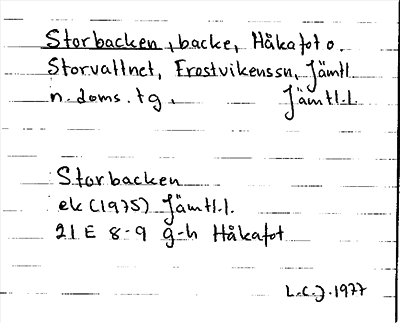 Storbacken, backe, Håkafot o.
Storvattnet, Frostvikenssn, Jämtl.
n. doms. tg. Jämtl.l.
Storbacken
ek (1975) Jämtl.l.
21 E 8-9 g-h Håkafot
L.C.J. 1977